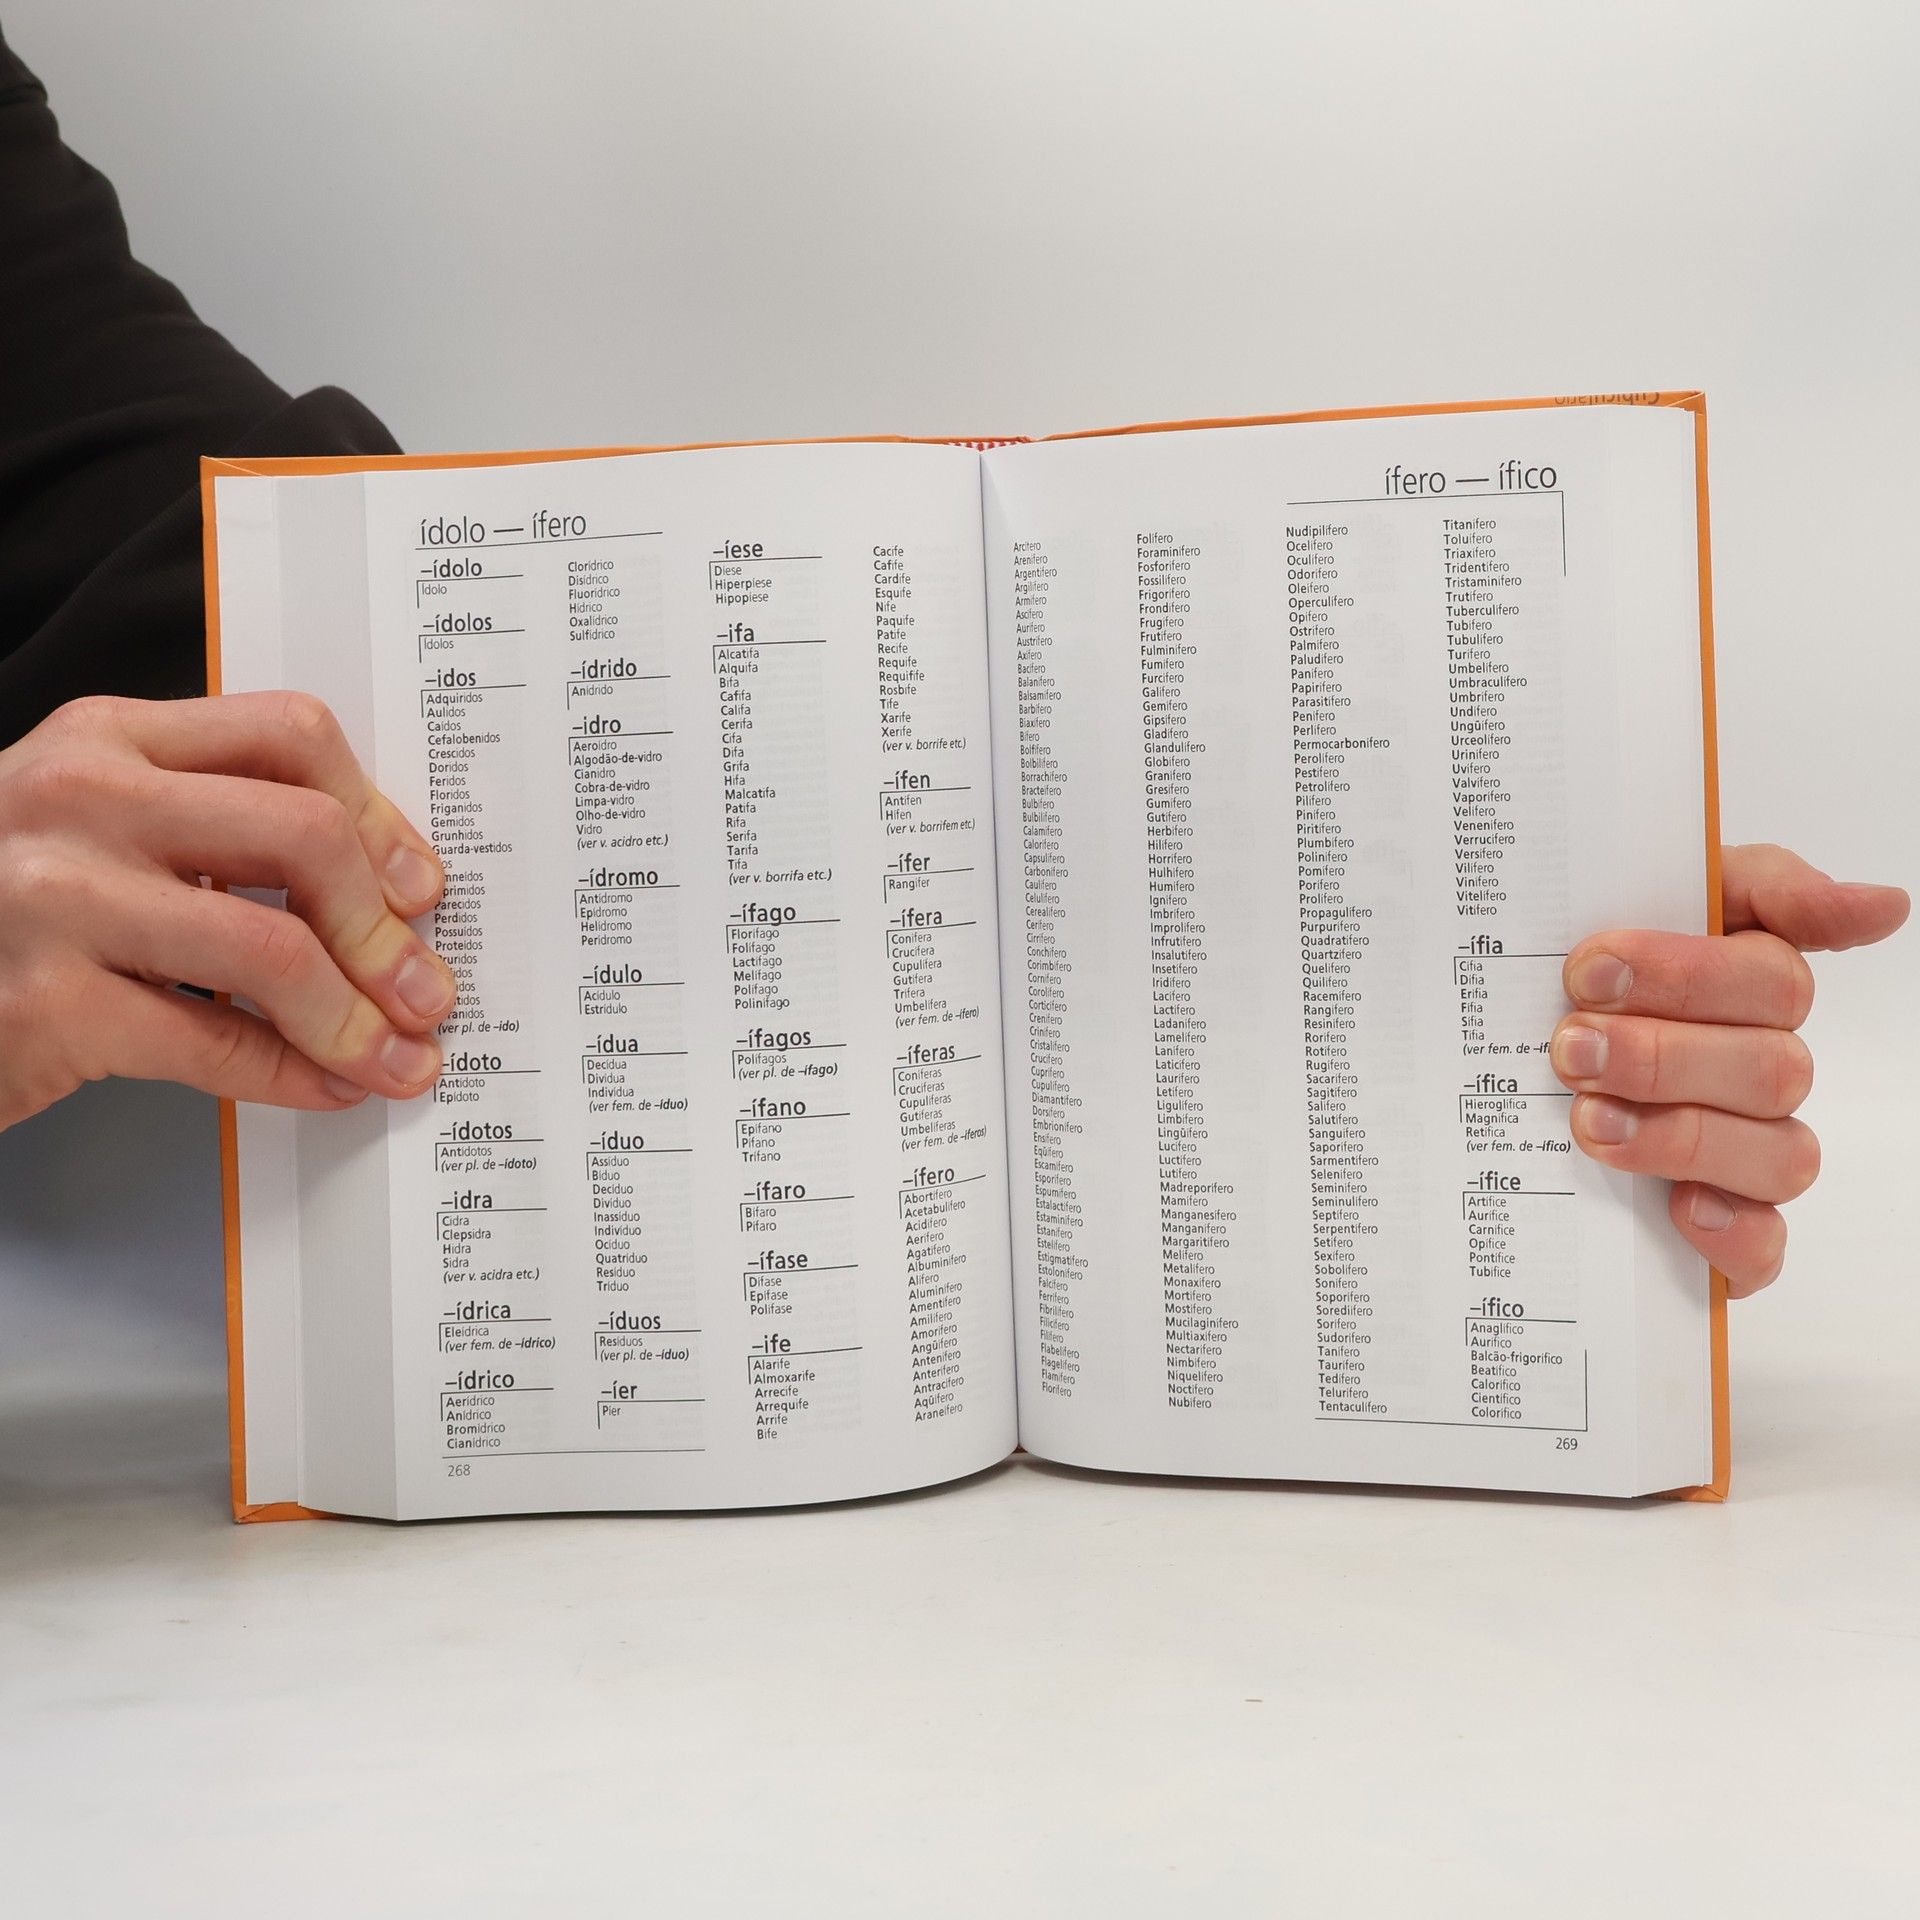 ídolo — ífero
–ídolo
Ídolo
–ídolos
Ídolos
–idos
Adquiridos
Aulidos
Caídos
Cefalobenidos
Crescidos
Doridos
Feridos
Floridos
Friganidos
Gemidos
Grunhidos
Guarda-vestidos
Parecidos
Perdidos
Possuídos
Proteidos
(ver pl. de –ido)
–ídoto
Antídoto
Epídoto
–ídotos
Antídotos
(ver pl. de –ídoto)
–idra
Cidra
Clepsidra
Hidra
Sidra
(ver v. acidra etc.)
–ídrica
Eleídrica
(ver fem. de –ídrico)
–ídrico
Aerídrico
Anídrico
Bromídrico
Cianídrico
268
Clorídrico
Disídrico
Fluorídrico
Hídrico
Oxalídrico
Sulfídrico
–ídrido
Anídrido
–idro
Aeroidro
Algodão-de-vidro
Cianidro
Cobra-de-vidro
Limpa-vidro
Olho-de-vidro
Vidro
(ver v. acidro etc.)
–ídromo
Antídromo
Epídromo
Helídromo
Perídromo
–ídulo
Acídulo
Estrídulo
–ídua
Decídua
Divídua
Indivídua
(ver fem. de –íduo)
–íduo
Assíduo
Bíduo
Decíduo
Divíduo
Inassíduo
Indivíduo
Ocíduo
Quatríduo
Resíduo
Tríduo
–íduos
Resíduos
(ver pl. de –íduo)
–íer
Píer
–íese
Díese
Hiperpíese
Hipopíese
–ifa
Alcatifa
Alquifa
Bifa
Cafifa
Califa
Cerifa
Cifa
Difa
Grifa
Hifa
Malcatifa
Patifa
Rifa
Serifa
Tarifa
Tifa
(ver v. borrifa etc.)
–ífago
Florífago
Folífago
Lactífago
Melífago
Polífago
Polinífago
–ífagos
Polífagos
(ver pl. de –ífago)
–ífano
Epífano
Pífano
Trífano
–ífaro
Bífaro
Pífaro
–ífase
Dífase
Epífase
Polífase
–ife
Alarife
Almoxarife
Arrecife
Arrequife
Arrife
Bife
Cacife
Cafife
Cardife
Esquife
Nife
Paquife
Patife
Recife
Requife
Requifife
Rosbife
Tife
Xarife
Xerife
(ver v. borrife etc.)
–ífen
Antífen
Hífen
(ver v. borrifem etc.)
–ífer
Rangífer
–ífera
Conífera
Crucífera
Cupulífera
Gutífera
Trífera
Umbelífera
(ver fem. de –ífero)
–íferas
Coníferas
Crucíferas
Cupulíferas
Gutíferas
Umbelíferas
(ver fem. de –íferos)
–ífero
Abortífero
Acetabulífero
Acidífero
Aerífero
Agatífero
Albuminífero
Alífero
Aluminífero
Amentífero
Amilífero
Amorífero
Angüífero
Antenífero
Anterífero
Antracífero
Aqüífero
Araneífero
ífero — ífico
Arcífero
Arenífero
Argentífero
Argilífero
Armífero
Ascífero
Aurífero
Austrífero
Axífero
Bacífero
Balanífero
Balsamífero
Barbífero
Biaxífero
Bífero
Bolífero
Bolbilífero
Borrachífero
Bracteífero
Bulbífero
Bulbilífero
Calamífero
Calorífero
Capsulífero
Carbonífero
Caulífero
Celulífero
Cerealífero
Cerífero
Cirrífero
Conchífero
Corimbífero
Cornífero
Corolífero
Corticífero
Crenífero
Crinífero
Cristalífero
Crucífero
Cuprífero
Cupulífero
Diamantífero
Dorsífero
Embrionífero
Ensífero
Eqüífero
Escamífero
Esporífero
Espumífero
Estalactífero
Estaminífero
Estanífero
Estelífero
Estigmatífero
Estolonífero
Falcífero
Ferrífero
Fibrilífero
Filicífero
Filífero
Flabelífero
Flagelífero
Flamífero
Florífero
Folífero
Foraminífero
Fosforífero
Fossilífero
Frigorífero
Frondífero
Frugífero
Frutífero
Fulminífero
Fumífero
Furcífero
Galífero
Gemífero
Gipsífero
Gladífero
Glandulífero
Globífero
Granífero
Gresífero
Gumífero
Gutífero
Herbífero
Hilífero
Horrífero
Hulhífero
Humífero
Ignífero
Imbrífero
Improlífero
Infrutífero
Insalutífero
Insetífero
Iridífero
Lacífero
Lactífero
Ladanífero
Lamelífero
Lanífero
Laticífero
Laurífero
Letífero
Ligulífero
Limbífero
Lingüífero
Lucífero
Luctífero
Lutífero
Madreporífero
Mamífero
Manganesífero
Manganífero
Margaritífero
Melífero
Metalífero
Monaxífero
Mortífero
Mostífero
Mucilaginífero
Multiaxífero
Nectarífero
Nimbífero
Niquelífero
Noctífero
Nubífero
Nudipilífero
Ocelífero
Oculífero
Odorífero
Oleífero
Operculífero
Opífero
Ostrífero
Palmífero
Paludífero
Panífero
Papirífero
Parasitífero
Penífero
Perlífero
Permocarbonífero
Perolífero
Pestífero
Petrolífero
Pilífero
Pinífero
Piritífero
Plumbífero
Polinífero
Pomífero
Porífero
Prolífero
Propagulífero
Purpurífero
Quadratífero
Quartzífero
Quelífero
Quilífero
Racemífero
Rangífero
Resinífero
Rorífero
Rotífero
Rugífero
Sacarífero
Sagitífero
Salífero
Salutífero
Sanguífero
Saporífero
Sarmentífero
Selenífero
Seminífero
Seminulífero
Septífero
Serpentífero
Setífero
Sexífero
Sobolífero
Sonífero
Soporífero
Sorediífero
Sorífero
Sudorífero
Tanífero
Taurífero
Tedífero
Telurífero
Tentaculífero
Titanífero
Toluífero
Triaxífero
Tridentífero
Tristaminífero
Trutífero
Tuberculífero
Tubífero
Tubulífero
Turífero
Umbelífero
Umbraculífero
Umbrífero
Undífero
Ungüífero
Urceolífero
Urinífero
Uvífero
Valvífero
Vaporífero
Velífero
Venenífero
Verrucífero
Versífero
Vilífero
Vinífero
Vitelífero
Vitífero
–ífia
Cífia
Dífia
Erífia
Fífia
Sífia
Tífia
(ver fem. de
–ífica
Hieroglífica
Magnífica
Retífica
(ver fem. de –ífico)
–ífice
Artífice
Aurífice
Carnífice
Opífice
Pontífice
Tubífice
–ífico
Anaglífico
Aurífico
Balcão-frigorífico
Beatífico
Calorífico
Científico
Colorífico
269